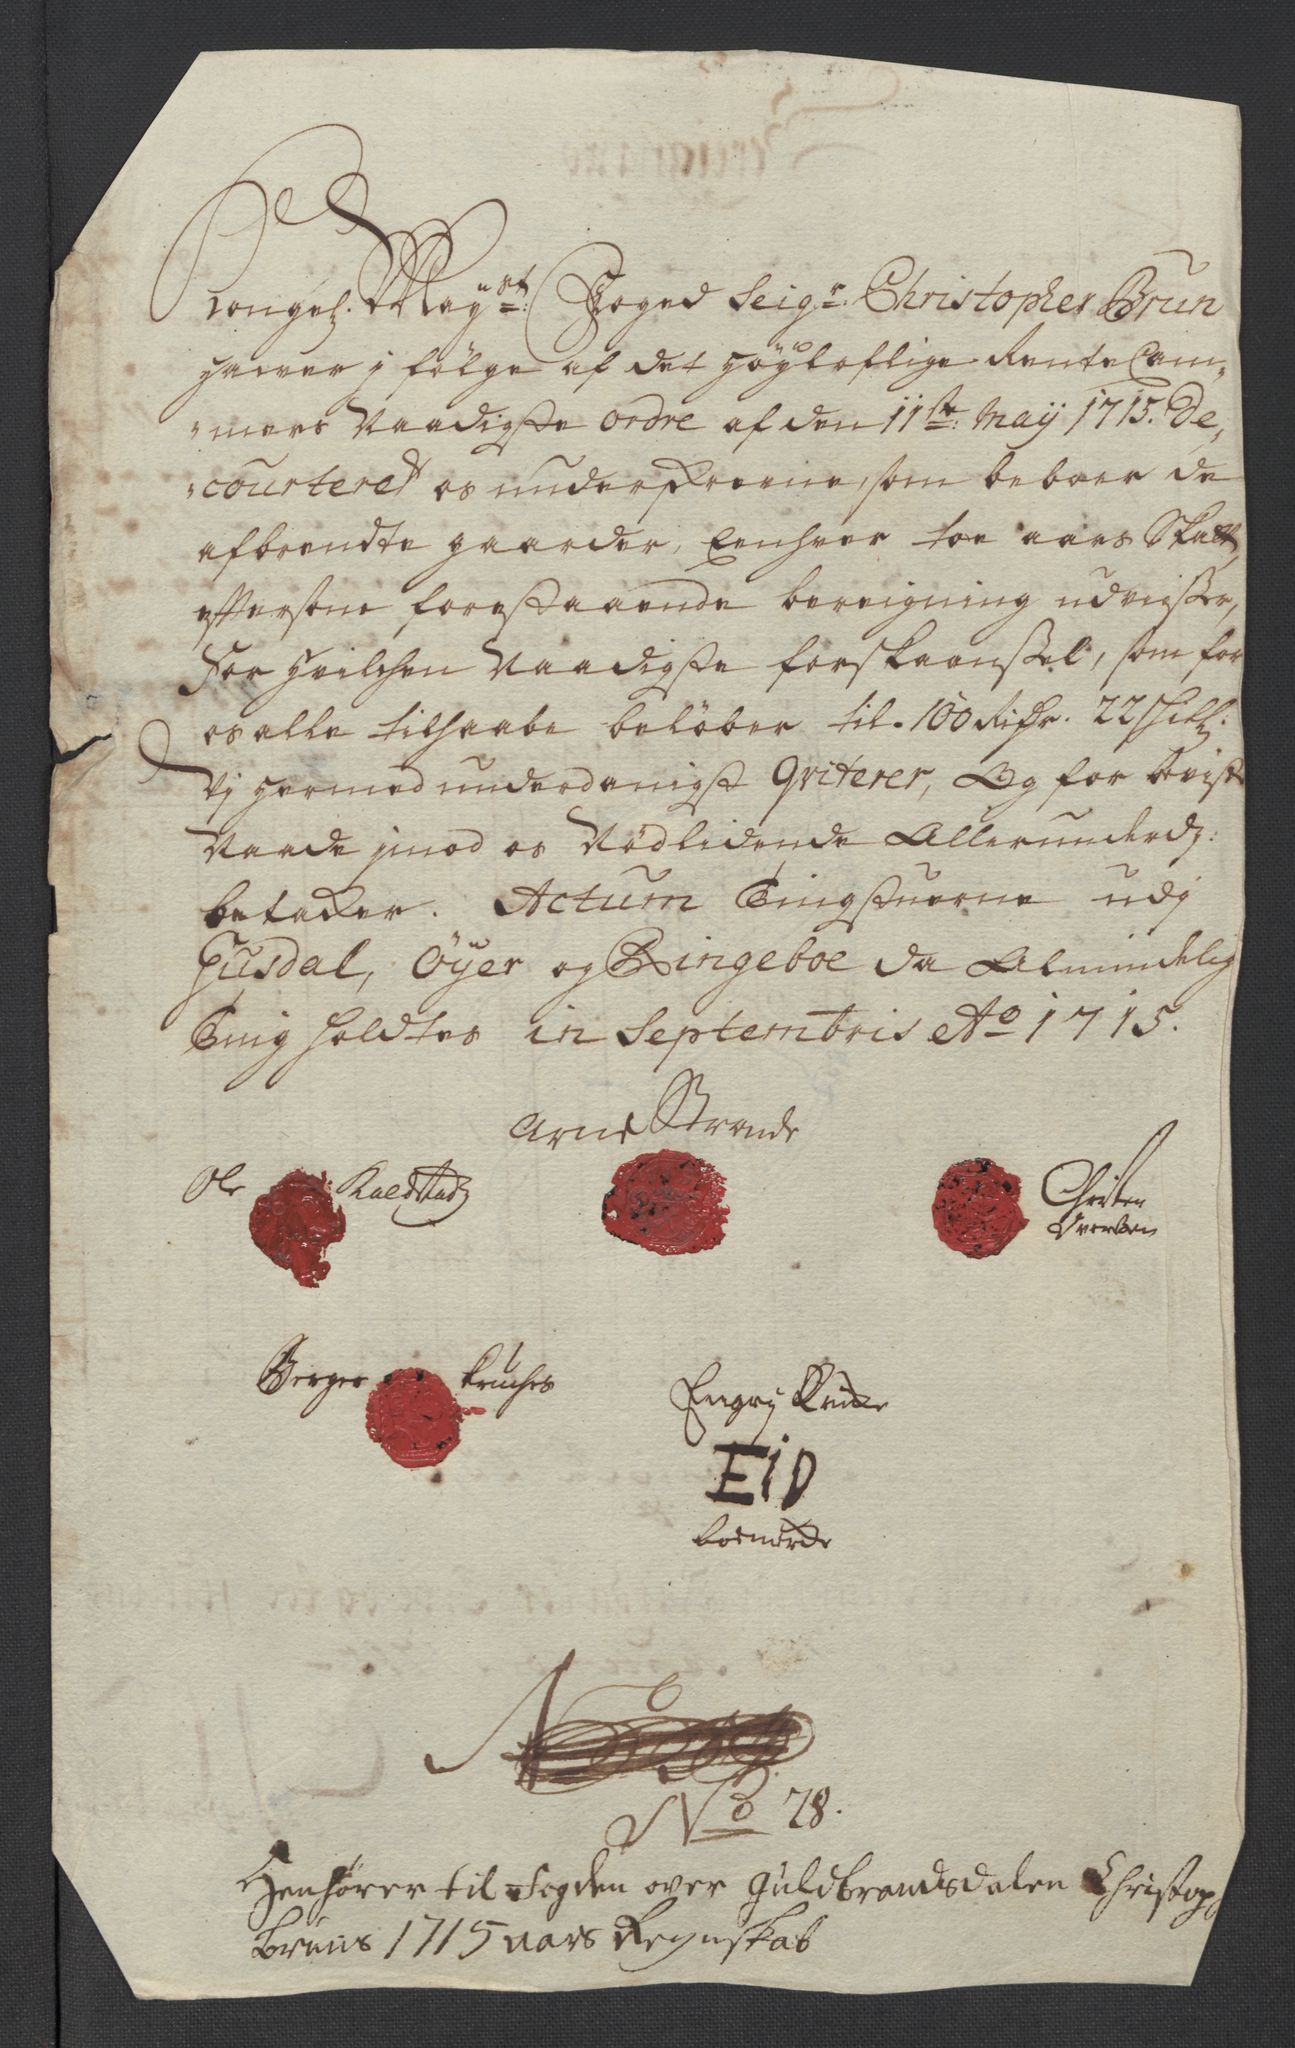 Kongel. Mayst: Foged Seigr. Christopher Brun
hawer j følge af det höyloflige Rente Cam-
mers Naadigste ordre af den 11ste: Maij 1715. De-
courteret os underskrevne, som beboer de
afbrendte gaarder, Eenhver toe aars Skatt,
eftersom forestaaende bereigning udviisser,
For hvilchen Naadigste forskaanssel, som for
os alle tilhaabe beløber til. 100 Rixdr. 22 schill:
Vj hermed underdanigst Qviterer, Og for beviste
Naade jmod os Nødlidende Allerunderdg:
betacker. Actum Tingstuerne udj
Fusdal, Öyer og Ringeboe da Almindelig
Ting holdtes in Septembris Ao 1715.
Arne Strande
Ole Kaldstad
Christen Iversen
Berger Kruches
Engrj
EID
boemerke
No 78.
Henhører til Fogden over Guldbrandsdalen Christop
Bruns 1715 aars Regnskab